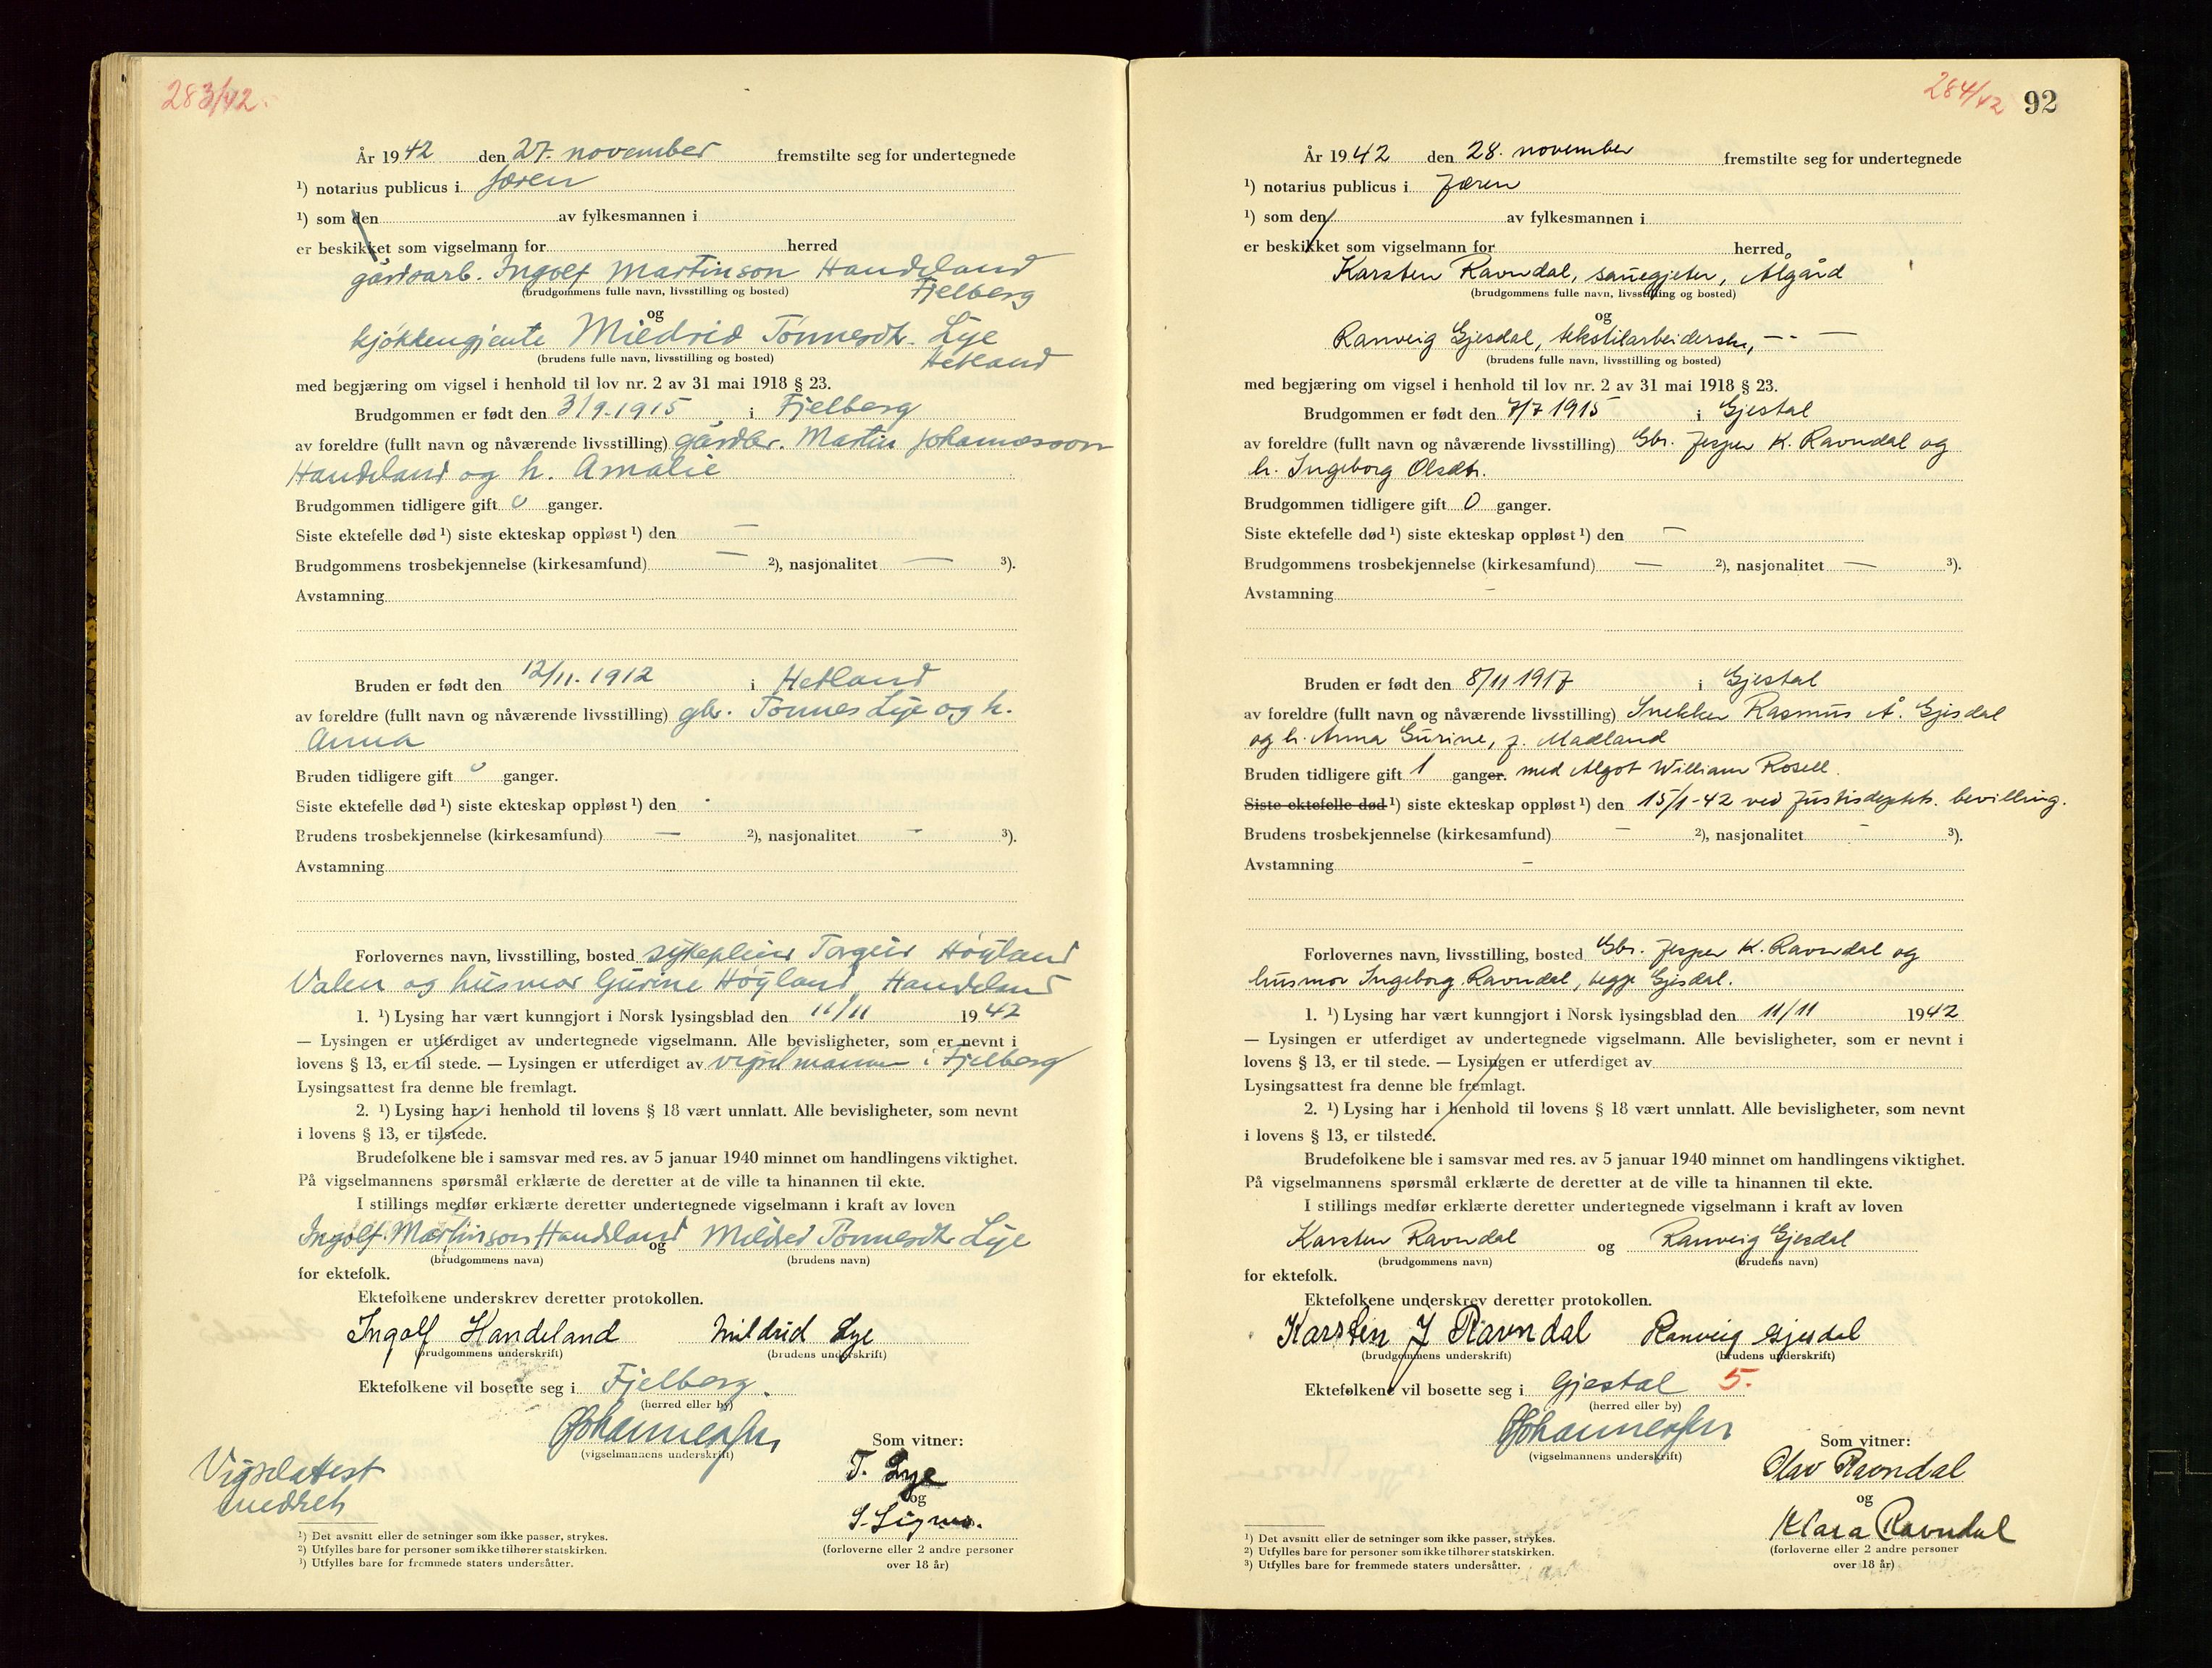 283/42.
År 1942 den 27. november fremstilte seg for undertegnede
¹) notarius publicus i Jæren
¹) som den av fylkesmannen i
er beskikket som vigselmann for herred
gårdsarb. Ingolf Martinson Handeland
Fjelberg
(brudgommens fulle navn, livsstilling og bosted)
og
kjøkkengjente Mildrid Tønnesdtr. Lye
Hetland
(brudens fulle navn, livsstilling og bosted)
med begjæring om vigsel i henhold til lov nr. 2 av 31 mai 1918 § 23.
Brudgommen er født den 3/9.1915 i Fjelberg
av foreldre (fullt navn og nåværende livsstilling) gårdbr. Martin Johannesson
Handeland og h. Amalie
Brudgommen tidligere gift 0 ganger.
Siste ektefelle død ¹) siste ekteskap oppløst ¹) den —
Brudgommens trosbekjennelse (kirkesamfund) — ²), nasjonalitet — ³).
Avstamning
Bruden er født den 12/11.1912 i Hetland
av foreldre (fullt navn og nåværende livsstilling) gbr. Tønnes Lye og h.
Anna
Bruden tidligere gift 0 ganger.
Siste ektefelle død ¹) siste ekteskap oppløst ¹) den -
Brudens trosbekjennelse (kirkesamfund) — ²), nasjonalitet - ³).
Avstamning
Forlovernes navn, livsstilling, bosted sykepleier Torgeir Høyland
Valen og husmor Gurine Høyland, Handeland
1. ¹) Lysing har vært kunngjort i Norsk lysingsblad den 11/11 1942
— Lysingen er utferdiget av undertegnede vigselmann. Alle bevisligheter, som er nevnt i
lovens § 13, er til stede. — Lysingen er utferdiget av vigselmannen i Fjelberg
Lysingsattest fra denne ble fremlagt.
2. ¹) Lysing har i henhold til lovens § 18 vært unnlatt. Alle bevisligheter, som nevnt
i lovens § 13, er tilstede.
Brudefolkene ble i samsvar med res. av 5 januar 1940 minnet om handlingens viktighet.
På vigselmannens spørsmål erklærte de deretter at de ville ta hinannen til ekte.
I stillings medfør erklærte deretter undertegnede vigselmann i kraft av loven
Ingolf Martinson Handeland og Mildred Tønnesdtr Lye
(brudgommens navn) (brudens navn)
for ektefolk.
Ektefolkene underskrev deretter protokollen.
Ingolf Handeland Mildrid Lye
(brudgommens underskrift) (brudens underskrift)
Ektefolkene vil bosette seg i Fjelberg.
(herred eller by)
Johannessen
(vigselmannens underskrift)
Som vitner:
T. Lye
og
Vigselattest
medtelt
¹) Det avsnitt eller de setninger som ikke passer, strykes.
²) Utfylles bare for personer som ikke tilhører statskirken.
³) Utfylles bare for fremmede staters undersåtter.
(forloverne eller 2 andre personer
over 18 år)
284/42 92
År 1942 den 28. november fremstilte seg for undertegnede
¹) notarius publicus i Jæren
¹) som den av fylkesmannen i
er beskikket som vigselmann for herred
Karsten Ravndal, sauegjeter, Ålgård
(brudgommens fulle navn, livsstilling og bosted)
og
Ranveig Gjesdal, tekstilarbeiderske, -"-
(brudens fulle navn, livsstilling og bosted)
med begjæring om vigsel i henhold til lov nr. 2 av 31 mai 1918 § 23.
Brudgommen er født den 7/7 1915 i Gjestal
av foreldre (fullt navn og nåværende livsstilling) Gbr. Jesper K. Ravndal og
h. Ingeborg Olsdtr.
Brudgommen tidligere gift 0 ganger.
Siste ektefelle død ¹) siste ekteskap oppløst ¹) den —
Brudgommens trosbekjennelse (kirkesamfund) — ²), nasjonalitet — ³).
Avstamning -
Bruden er født den 8/11 1917 i Gjestal
av foreldre (fullt navn og nåværende livsstilling) Snekker Rasmus Å. Gjesdal
og h. Anna Gurine, f. Madland
Bruden tidligere gift 1 ganger. med Algot William Rosell.
Siste ektefelle død ¹) siste ekteskap oppløst ¹) den 15/1-42 ved Justisdeptets. bevilling.
Brudens trosbekjennelse (kirkesamfund) - ²), nasjonalitet - ³).
Avstamning -
Forlovernes navn, livsstilling, bosted Gbr. Jesper K. Ravndal og
husmor Ingeborg Ravndal, begge Gjesdal.
1. ¹) Lysing har vært kunngjort i Norsk lysingsblad den 11/11 1942
— Lysingen er utferdiget av undertegnede vigselmann. Alle bevisligheter, som er nevnt i
lovens § 13, er til stede. — Lysingen er utferdiget av
Lysingsattest fra denne ble fremlagt.
2. ¹) Lysing har i henhold til lovens § 18 vært unnlatt. Alle bevisligheter, som nevnt
i lovens § 13, er tilstede.
Brudefolkene ble i samsvar med res. av 5 januar 1940 minnet om handlingens viktighet.
På vigselmannens spørsmål erklærte de deretter at de ville ta hinannen til ekte.
I stillings medfør erklærte deretter undertegnede vigselmann i kraft av loven
Karsten Ravndal og Ranveig Gjesdal
(brudgommens navn) (brudens navn)
for ektefolk.
Ektefolkene underskrev deretter protokollen.
Karsten J Ravndal Ranveig Gjesdal
(brudgommens underskrift) (brudens underskrift)
Ektefolkene vil bosette seg i Gjestal 5.
(herred eller by)
Johannessen
(vigselmannens underskrift)
Som vitner:
Olav Ravndal
og
Klara Ravndal
(forloverne eller 2 andre personer
over 18 år)
¹) Det avsnitt eller de setninger som ikke passer, strykes.
²) Utfylles bare for personer som ikke tilhører statskirken.
³) Utfylles bare for fremmede staters undersåtter.